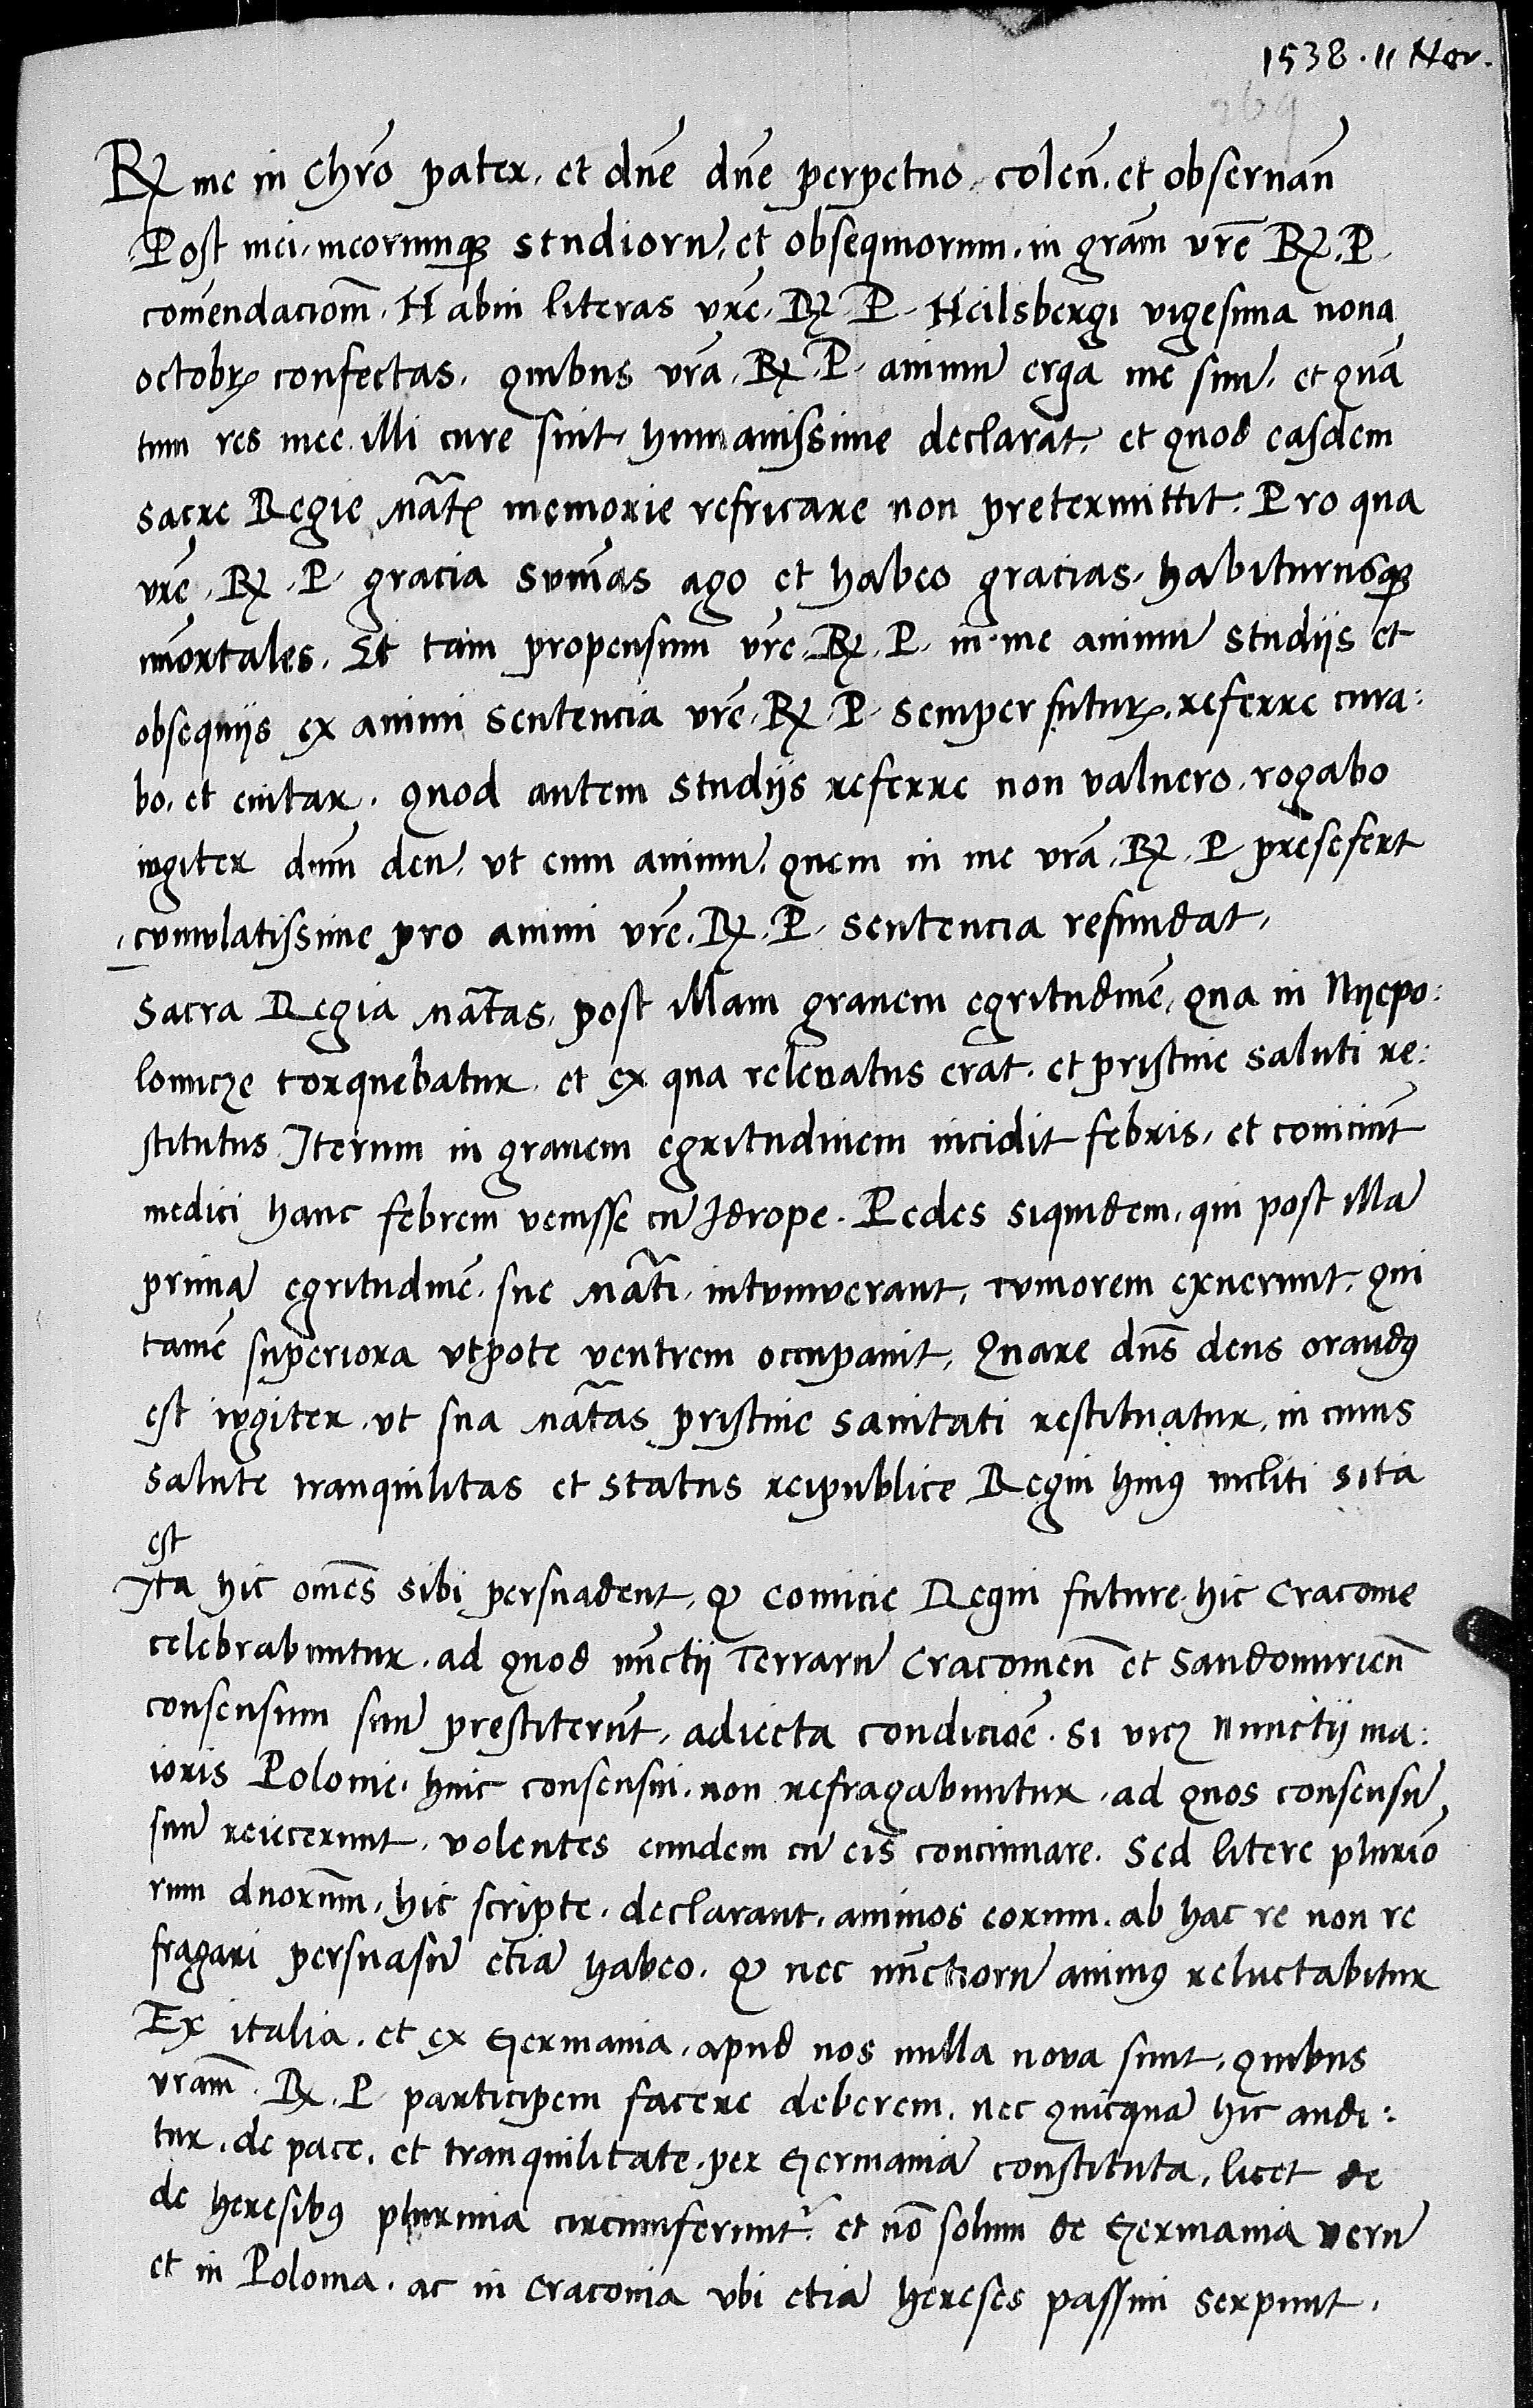 1538. 11 Nov.
269
Rx me in Chro pater, et dne dne perpetuo colen. et obseruan
Post mei, meorumq studioru, et obsequiorum, in gram vre Rx. P.
comendaciom. Habui literas vre. Rx. P. Heilsbergi vigesima nona
octobr confectas, quibus vra. Rx. P. animu erga me suu, et qua
tum res mee illi cure sint, humanissime declarat, et quod easdem
sacre Regie Mats memorie refricare non pretermittit. Pro qua
vre. Rx. P. gracia summas ago et habeo gracias, habiturusq
immortales. Et tam propensum vre. Rx. P. in me animu studijs et
obsequijs ex animi sentencia vre. Rx. P. semper futur. referre cura:
bo, et enitar. Quod autem studijs referre non valuero, rogabo
iugiter dnm deu, vt eum animu, quem in me vra. Rx. P. presefert
cumulatissime pro animi vre. Rx. P. sentencia refundat.
Sacra Regia Matas, post illam grauem egritudine, qua in Nyepo:
lomicze torquebatur, et ex qua releuatus erat, et pristine saluti re:
stitutus Iterum in grauem egritudinem incidit febris, et coniciunt
medici hanc febrem venisse cu Idrope. Pedes siquidem, qui post illa
prima egritudine sue Mati intumuerant, tumorem exuerunt, qui
tame superiora vtpote ventrem occupauit. Quare dns deus orandus
est iugiter vt sua Matas pristine sanitati restituatur, in cuius
salute tranquilitas et status reipublice Regni huius incliti sita
est
Ita hic omes sibi persuadent, q comicie Regni future hic Cracouie
celebrabuntur, ad quod nunctij Terraru Cracouien et Sandomirien
consensum suu prestiterunt, adiecta condicioe, si vicz Nunctij ma:
ioris Polonie, huic consensui non refragabuntur, ad quos consensu
suu reiecerunt, volentes eundem cu eis concinnare. Sed litere plurio
rum dnorum, hic scripte, declarant, animos eorum, ab hac re non re
fragari persuasu etia habeo, q nec nunctioru animus reluctabitur
Ex italia, et ex Germania, apud nos nulla nova sunt, quibus
vram. Rx. P. participem facere deberem, nec quicqua hic audi:
tur, de pace, et tranquilitate per Germania constituta, licet de
de heresibus plurima circumferunt, et no solum de Germania veru
et in Polonia, ac in Cracouia vbi etia hereses passim serpunt.